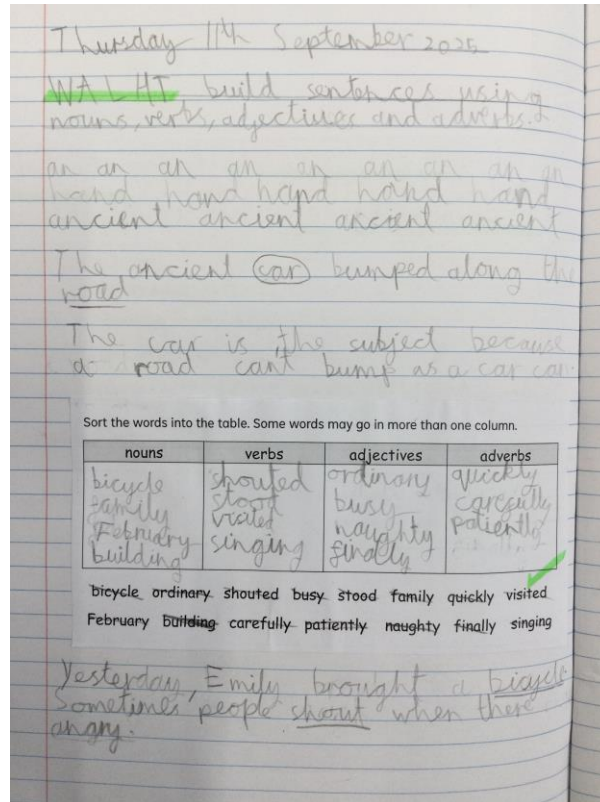 Thursday 11th September 2025
WALHT build sentences using
nouns, verbs, adjectives and adverbs.
an an an an an an an an an
hand hand hand hand hand
ancient ancient ancient ancient
The ancient car bumped along the
road
The car is the subject because
a road cant bump as a car can.
Sort the words into the table. Some words may go in more than one column.
nouns verbs adjectives adverbs
bicycle shouted ordinary quickly
family stood busy carefully
February visited naughty patiently
building singing finally
bicycle ordinary shouted busy stood family quickly visited
February building carefully patiently naughty finally singing
Yesterday, Emily brought a bicycle.
Sometimes people shout when there
angry.